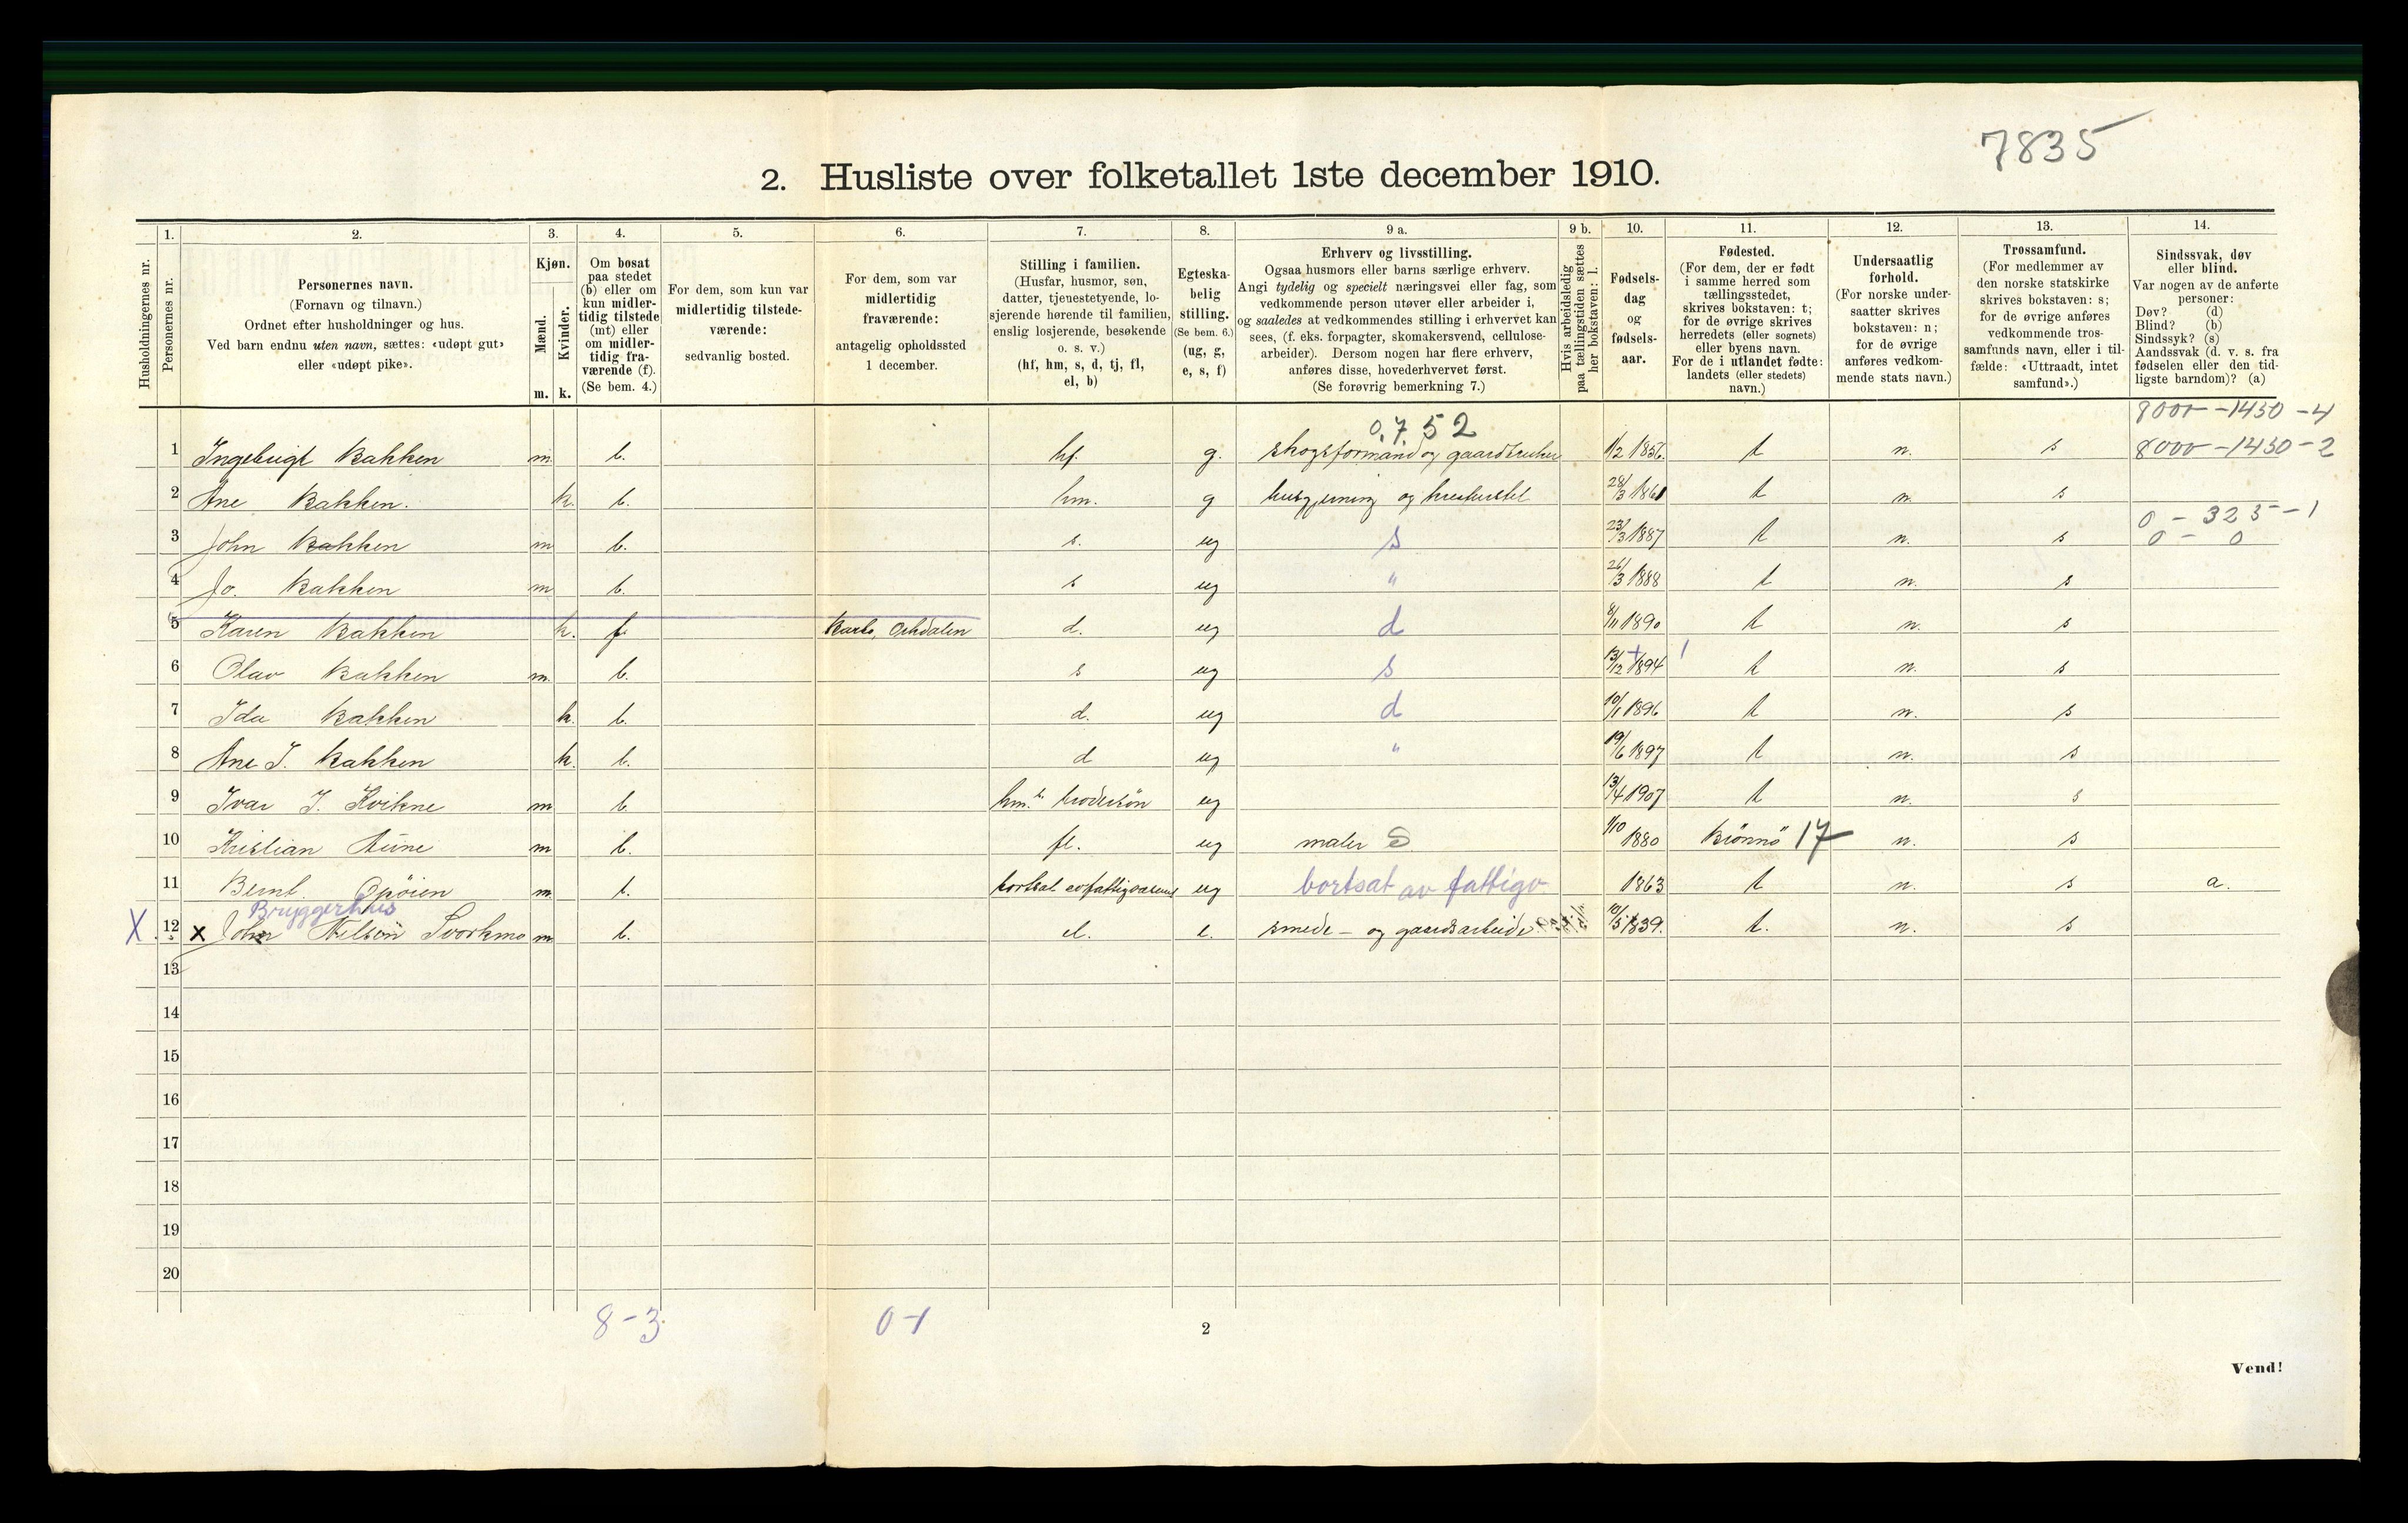 7835
2. Husliste over folketallet 1ste december 1910.
Husholdningernes nr.
1.
Personernes nr.
2.
Personernes navn.
(Fornavn og tilnavn.)
Ordnet efter husholdninger og hus.
Ved barn endnu uten navn, sættes: «udøpt gut»
eller «udøpt pike».
3.
Kjøn.
Mænd.
Kvinder.
m. k.
4.
Om bosat
paa stedet
(b) eller om
kun midler-
tidig tilstede
(mt) eller
om midler-
tidig fra-
værende (f).
(Se bem. 4.)
5.
For dem, som kun var
midlertidig tilstede-
værende:
sedvanlig bosted.
6.
For dem, som var
midlertidig
fraværende:
antagelig opholdssted
1 december.
7.
Stilling i familien.
(Husfar, husmor, søn,
datter, tjenestetyende, lo-
sjerende hørende til familien,
enslig losjerende, besøkende
o. s. v.)
(hf, hm, s, d, tj, fl,
el, b)
8.
Egteska-
belig
stilling.
(Se bem. 6.)
(ug, g,
e, s, f)
9 a.
Erhverv og livsstilling.
Ogsaa husmors eller barns særlige erhverv.
Angi tydelig og specielt næringsvei eller fag, som
vedkommende person utøver eller arbeider i,
og saaledes at vedkommendes stilling i erhvervet kan
sees, (f. eks. forpagter, skomakersvend, cellulose-
arbeider). Dersom nogen har flere erhverv,
anføres disse, hovederhvervet først.
(Se forøvrig bemerkning 7.)
9 b.
Hvis arbeidsledig
paa tællingstiden sættes
her bokstaven: l.
10.
Fødsels-
dag
og
fødsels-
aar.
11.
Fødested.
(For dem, der er født
i samme herred som
tællingsstedet,
skrives bokstaven: t;
for de øvrige skrives
herredets (eller sognets)
eller byens navn.
For de i utlandet fødte:
landets (eller stedets)
navn.)
12.
Undersaatlig
forhold.
(For norske under-
saatter skrives
bokstaven: n;
for de øvrige
anføres vedkom-
mende stats navn.)
13.
Trossamfund.
(For medlemmer av
den norske statskirke
skrives bokstaven: s;
for de øvrige anføres
vedkommende tros-
samfunds navn, eller i til-
fælde: «Uttraadt, intet
samfund».)
14.
Sindssvak, døv
eller blind.
Var nogen av de anførte
personer:
Døv? (d)
Blind? (b)
Sindssyk? (s)
Aandssvak (d. v. s. fra
fødselen eller den tid-
ligste barndom)? (a)
0.752 8000 - 1430 - 4
1 Ingebrigt Bakken m. b. hf. g. skogsformand og gaardbruker 1/2 1856. t n. s 8000 - 1430 - 2
2 Ane Bakken. k. b. hm. g husgjerning og kreaturstel 28/3 1861 t n. s
0 - 325 - 1
3 John Bakken m b. s. ug s 23/3 1887 t n. s 0 - 0
4 Jo. Bakken m b. s ug " 26/3 1888 t n. s
5 Karen Bakken k. f Orkdalen d. ug d 8/11 1890 t n. s
6 Olav Bakken m. b. s ug s 13/12 1894 t n. s
7 Ida Bakken k. b. d. ug d 10/1 1896 t n. s
8 Ane I. Bakken k. b. d ug " 19/6 1897 t n. s
9 Ivar J. Kvikne m b. hm.s brodersøn ug 13/4 1907 t n. s
10 Kristian Aune m b. fl. ug maler 1/10 1880 Brönnö 17 n. s
11 Bernt Opöien m. b. bortsat av fattigvæsenet ug bortsat av fattigv 1863 t n. s a.
Bryggerhus
X. 12 x John Nilsön Svorkmo m b. el. e. smede- og gaardsarbeide 10/5 1839. t. n. s
13
14
15
16
17
18
19
20
8-3 0-1
2
Vend!